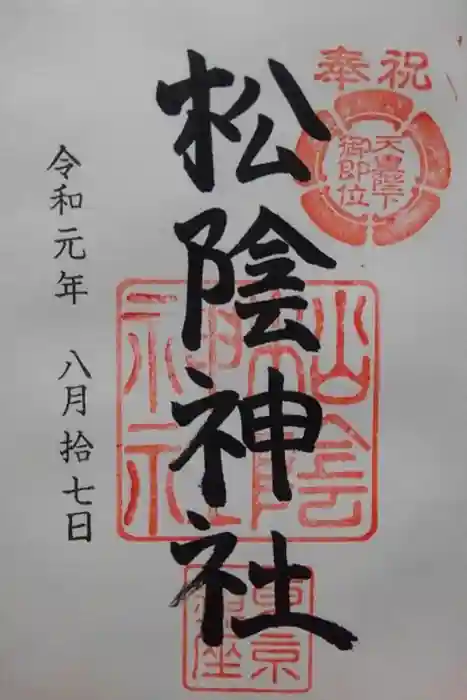 奉祝
天皇陛下
御即位
松陰神社
松陰神社
東京
鎮座
令和元年 八月拾七日